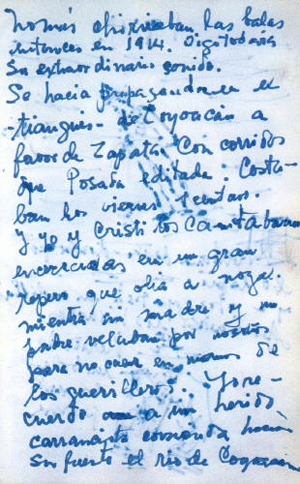 Nomás chirriaban las balas
entonces en 1914. Oigo todavía
su extraordinario sonido.
Se hacia propaganda en el
-tianguis- de Coyoacán a
favor de Zapata con corridos
que Posada editaba. Costa-
ban los viernes 1 centavo.
y yo y Cristi los cantabamos
encerradas en un gran
ropero que olia a nogal.
mientras mi madre y mi
padre velaban por nosotras
para no caer en manos de
los guerilleros. Yo re-
cuerdo a un herido
carrancista corriendo hacia
su fuerte el río de Coyoacán